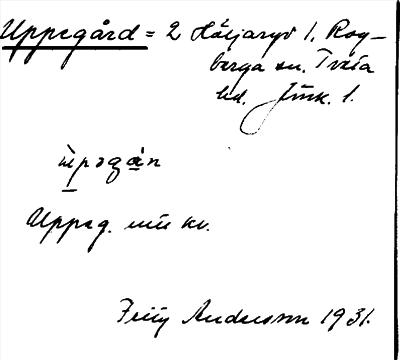 Uppegård = 2 Häljaryd 1. Rog-
berga sn. Tveta
hd. Jönk. l.
ùpəgàn
Uppeg. mu kv.
Andersson 1931.